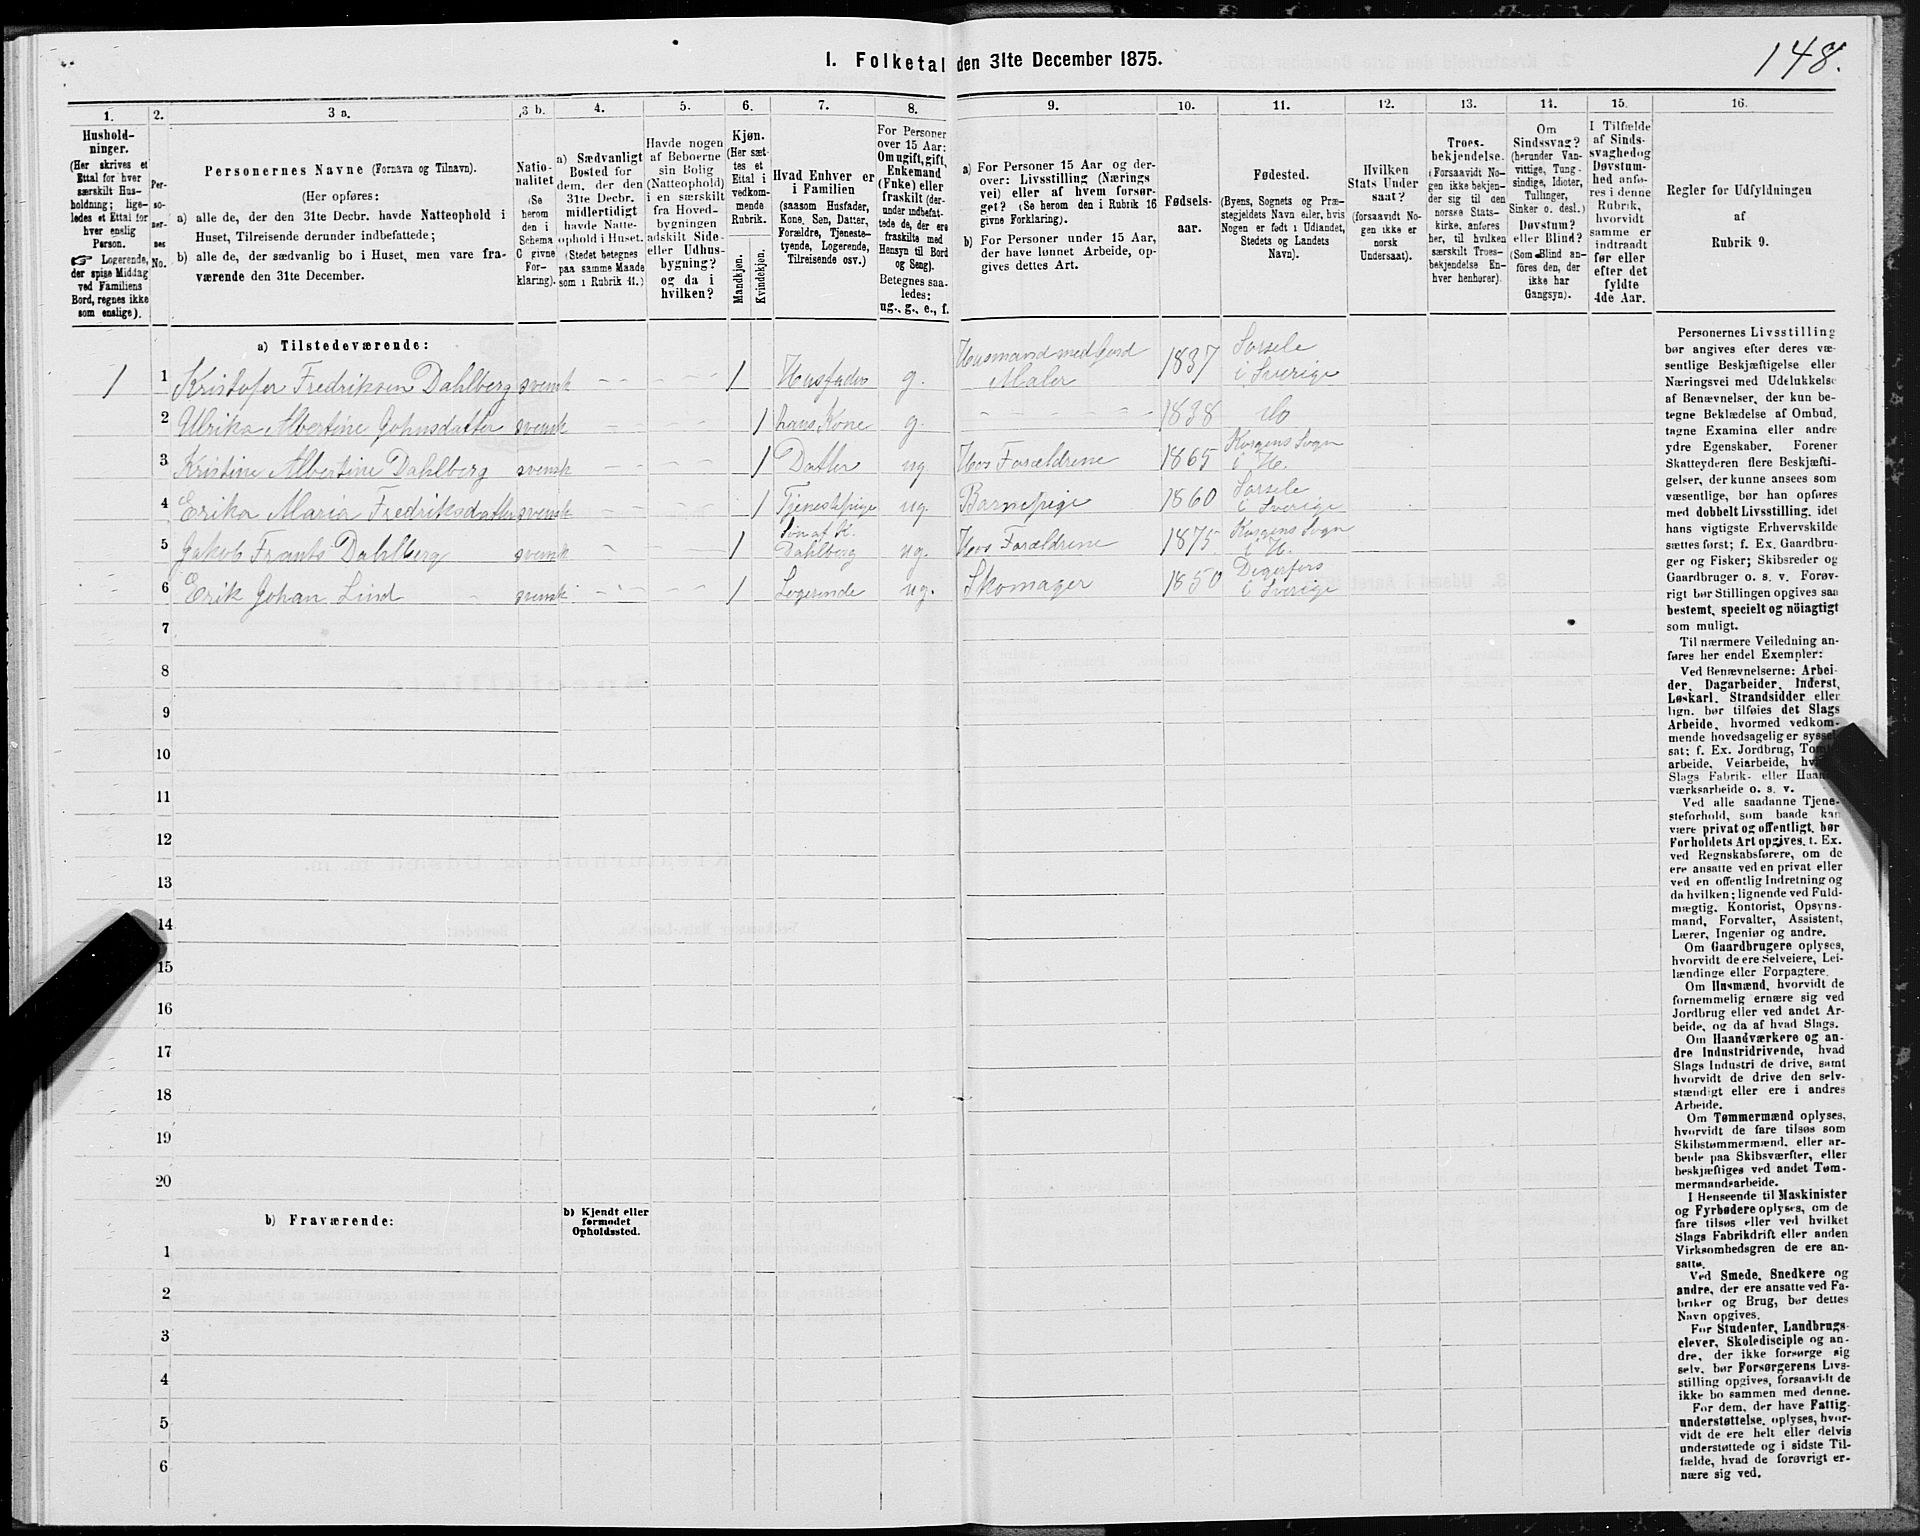 148.
I. Folketal den 31te December 1875.
1.
Hushold-
ninger.
(Her skrives et
Ettal for hver
særskilt Hus-
holdning; lige-
ledes et Ettal for
hver enslig
Person.
Logerende,
der spise Middag
ved Familiens
Bord, regnes ikke
som enslige).
2.
Per-
so-
ner-
nes
No.
3 a.
Personernes Navne (Fornavn og Tilnavn).
(Her opføres:
a) alle de, der den 31te Decbr. havde Natteophold i
Huset, Tilreisende derunder indbefattede;
b) alle de, der sædvanlig bo i Huset, men vare fra-
værende den 31te December.
3 b.
Natio-
nalitet
(Se
herom
den i
Schema
C givne
For-
klaring).
4.
a) Sædvanligt
Bosted for
dem, der den
31te Decbr.
midlertidigt
havde Natte-
ophold i Huset.
(Stedet betegnes
paa samme Maade
som i Rubrik 11.)
5.
Havde nogen
af Beboerne
sin Bolig
(Natteophold)
i en særskilt
fra Hoved-
bygningen
adskilt Side-
eller Udhus-
bygning?
og da i
hvilken?
6.
Kjøn.
(Her sæt-
tes et
Ettal i
vedkom-
mende
Rubrik.
Mandkjøn.
Kvindekjøn.
7.
Hvad Enhver er
i Familien
(saasom Husfader,
Kone, Søn, Datter,
Forældre, Tjeneste-
tyende, Logerende,
Tilreisende osv.)
8.
For Personer
over 15 Aar:
Om ugift, gift,
Enkemand
(Enke) eller
fraskilt (der-
under indbefat-
tede de, der ere
fraskilte med
Hensyn til Bord
og Seng).
Betegnes saa-
ledes:
ug., g., e., f.
9.
a) For Personer 15 Aar og der-
over: Livsstilling (Nærings
vei) eller af hvem forsør-
get? (Se herom den i Rubrik 16
givne Forklaring).
b) For Personer under 15 Aar,
der have lønnet Arbeide, op-
gives dettes Art.
10.
Fødsels-
aar.
11.
Fødested.
(Byens, Sognets og Præ-
stegjeldets Navn eller, hvis
Nogen er født i Udlandet,
Stedets og Landets
Navn).
12.
Hvilken
Stats Under
saat?
(forsaavidt No-
gen ikke er
norsk
Undersaat).
13.
Troes-
bekjendelse.
(Forsaavidt No-
gen ikke bekjen-
der sig til den
norske Stats-
kirke, anføres
her, til hvilken
særskilt Troes-
bekjendelse En-
hver henhører).
14.
Om
Sindssvag?
(herunder Van-
vittige, Tung-
sindige, Idioter,
Tullinger,
Sinker o. desl.)
Døvstum?
eller Blind?
(Som Blind an-
føres den, der
ikke har
Gangsyn).
15.
I Tilfælde
af Sinds-
svaghed og
Døvstum-
hed anfø-
res i denne
Rubrik,
hvorvidt
samme er
indtraadt
før eller
efter det
fyldte
4de Aar.
16.
Regler for Udfyldningen
af
Rubrik 9.
a) Tilstedeværende:
1 1 Kristofer Fredriksen Dahlberg svensk - - - - 1 Husfader g. Husmand med Jord Maler 1837 Sorsele i Sverige
2 Ulrika Albertine Johnsdatter svensk - - - - 1 hans Kone g. - - - - 1838 do
3 Kristine Albertine Dahlberg svensk - - - - 1 Datter ug Hos Forældrene 1865 Korgens Sogn i H.
4 Erika Maria Fredriksdatter svensk - - - - 1 Tjenestepige ug. Barnepige 1860 Sorsele i Sverige
5 Jakob Frants Dahlberg svensk - - - - 1 Søn af K. Dahlberg ug. Hos Forældrene 1875 Korgens Sogn i H.
6 Erik Johan Lind svensk - - - - 1 Logerende ug. Skomager 1850 Degerfors i Sverige
7
8
9
10
11
12
13
14
15
16
17
18
19
20
b) Fraværende:
b) Kjendt eller
formodet
Opholdssted.
1
2
3
4
5
6
Personernes Livsstilling
bør angives efter deres væ-
sentlige Beskjæftigelse eller
Næringsvei med Udelukkelse
af Benævnelser, der kun be-
tegne Beklædelse af Ombud,
tagne Examina eller andre
ydre Egenskaber. Forener
Skatteyderen flere Beskjæfti-
gelser, der kunne ansees som
væsentlige, bør han opføres
med dobbelt Livsstilling, idet
hans vigtigste Erhvervskilde
sættes først; f. Ex. Gaardbru-
ger og Fisker; Skibsreder og
Gaardbruger o. s. v. Forøv-
rigt bør Stillingen opgives saa
bestemt, specielt og nöiagtigt
som muligt.
Til nærmere Veiledning an-
føres her endel Exempler:
Ved Benævnelserne: Arbei-
der, Dagarbeider, Inderst,
Løskarl, Strandsidder eller
lign. bør tilføies det Slags
Arbeide, hvormed vedkom-
mende hovedsagelig er syssel-
sat; f. Ex. Jordbrug, Tomte-
arbeide, Veiarbeide,
Slags Fabrik- eller
værksarbeide o. s. v.
Ved alle saadanne Tjene-
steforhold, som baade kan
være privat og offentligt, bør
Forholdets Art opgives, f. Ex.
ved Regnskabsførere, om de
ere ansatte ved en privat eller
ved en offentlig Indretning og
da hvilken; lignende ved Fuld-
mægtig, Kontorist, Opsyns-
mand, Forvalter, Assistent,
Lærer, Ingeniør og andre.
Om Gaardbrugere oplyses,
hvorvidt de ere Selveiere, Lei-
lændinge eller Forpagtere.
Om Husmænd, hvorvidt de
fornemmelig ernære sig ved
Jordbrug eller ved andet Ar-
beide, og da af hvad Slags.
Om Haandværkere og an-
dre Industridrivende, hvad
Slags Industri de drive, samt
hvorvidt de drive den selv-
stændigt eller ere i andres
Arbeide.
Om Tømmermænd oplyses,
hvorvidt de fare tilsøs som
Skibstømmermænd, eller ar-
beide paa Skibsværfter, eller
beskjæftiges ved andet Tøm-
mermandsarbeide.
I Henseende til Maskinister
og Fyrbødere oplyses, om de
fare tilsøs eller ved hvilket
Slags Fabrikdrift eller anden
Virksomhedsgren de ere an-
satte.
Ved Smede, Snedkere og
andre, der ere ansatte ved Fa-
briker og Brug, bør dettes
Navn opgives.
For Studenter, Landbrugs-
elever, Skoledisciple og an-
dre, der ikke forsørge sig
selv, bør Forsørgerens Livs-
stilling opgives, forsaavidt de
ikke bo sammen med denne.
For dem, der have Fattig-
understøttelse, oplyses, hvor-
vidt de ere helt eller delvis
understøttede og i sidste Til-
fælde, hvad de forøvrigt er-
nære sig ved.